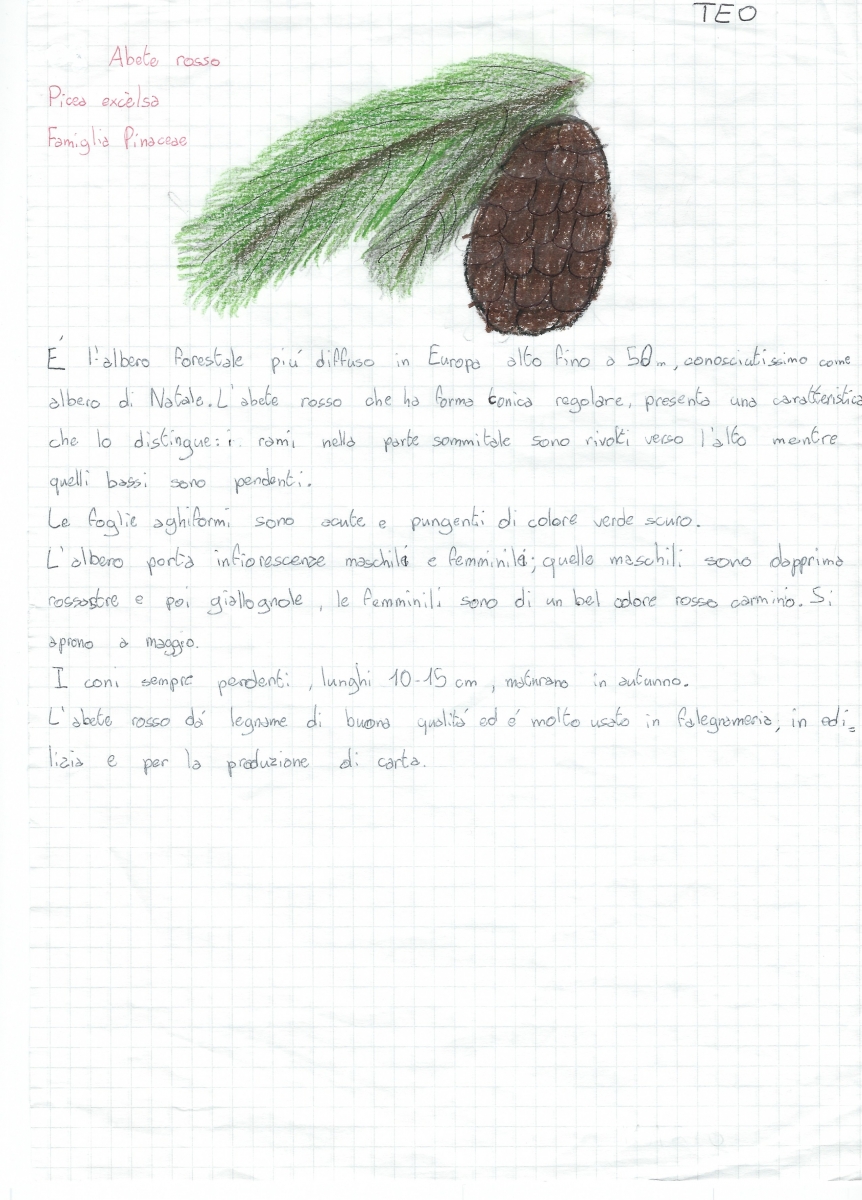 TEO
Abete rosso
Picea excèlsa
Famiglia Pinaceae
É l'albero forestale piú diffuso in Europa alto fino a 50m, conosciutissimo come
albero di Natale. L'abete rosso che ha forma conica regolare, presenta una caratteristica
che lo distingue: i rami nella parte sommitale sono rivolti verso l'alto mentre
quelli bassi sono pendenti.
Le foglie aghiformi sono acute e pungenti di colore verde scuro.
L'albero porta infiorescenze maschili e femminili; quelle maschili sono dapprima
rossastre e poi giallognole, le femminili sono di un bel colore rosso carminio. Si
aprono a maggio.
I coni sempre pendenti, lunghi 10-15 cm, maturano in autunno.
L'abete rosso dá legname di buona qualitá ed é molto usato in falegnameria, in edi=
lizia e per la produzione di carta.